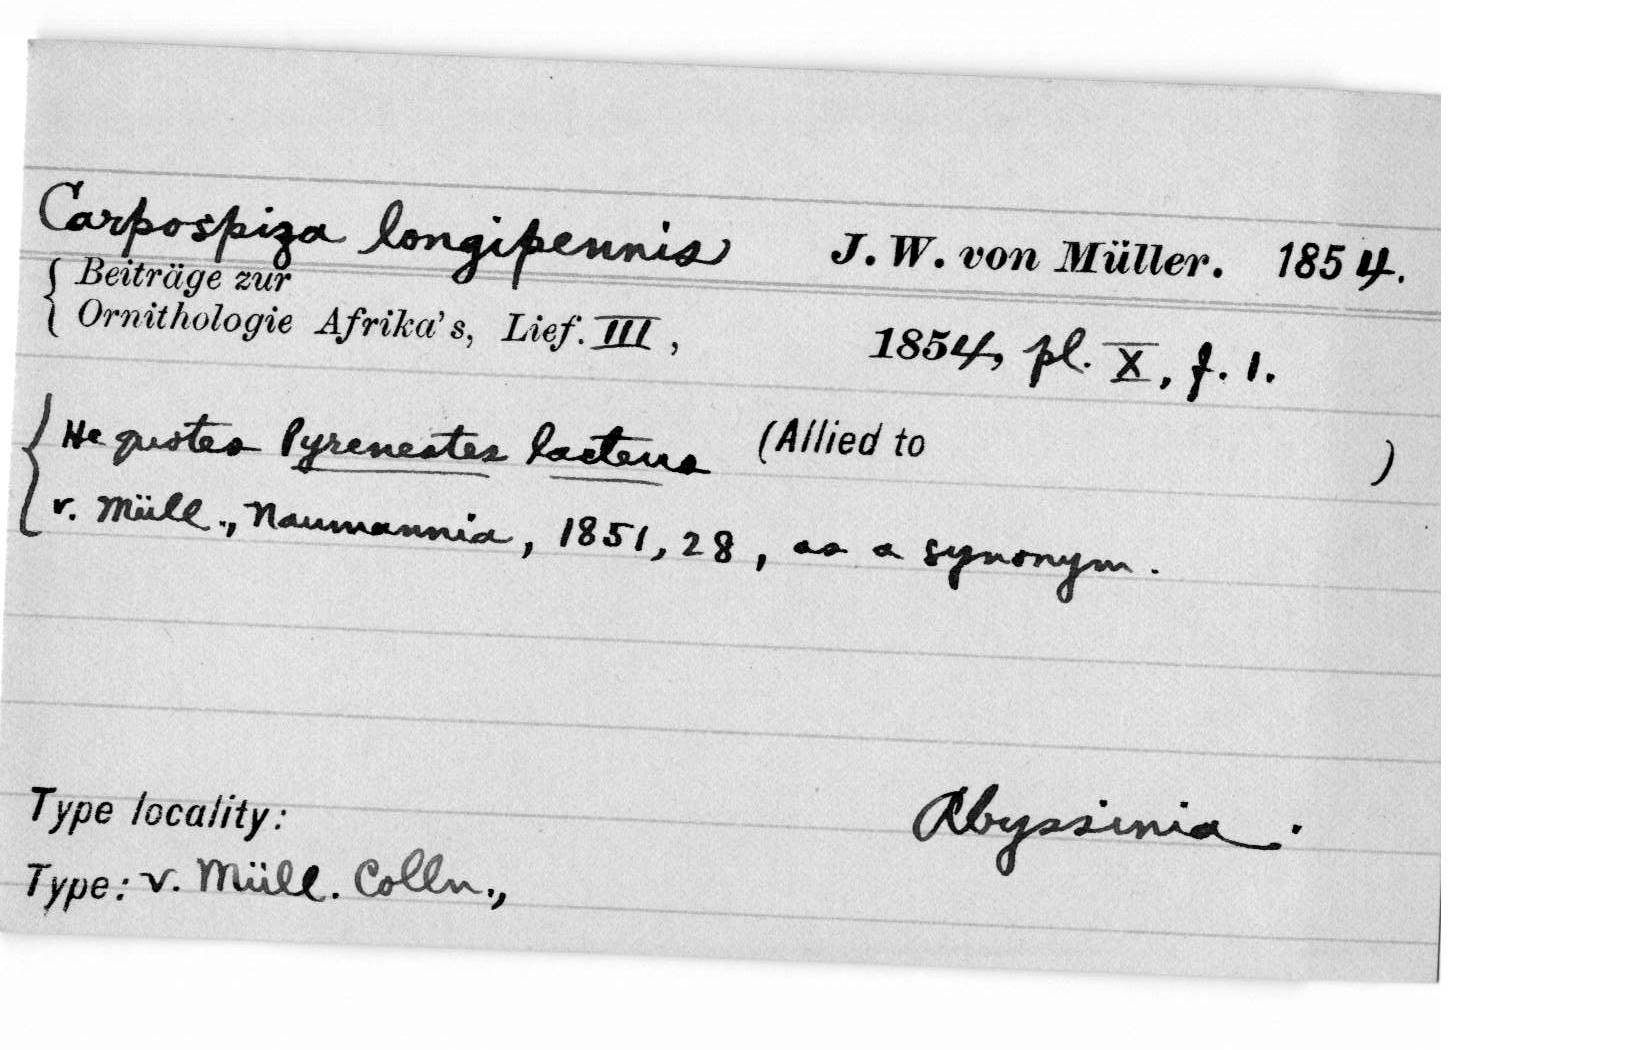 Carpospiza longipennis J. W. von Müller. 1854.
Beiträge zur
Ornithologie Afrika's, Lief. III, 1854, pl. X, f. 1.
He quotes Pyrenestes lacteus (Allied to )
v. Müll., Naumannia, 1851, 28, as a synonym.
Type locality: Abyssinia.
Type: v. Müll. Colln.,